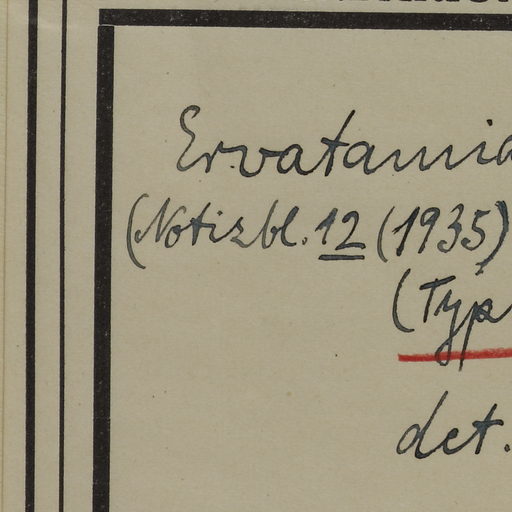 Ervatamia
(Notizbl. 12 (1935)
(Typ
det.